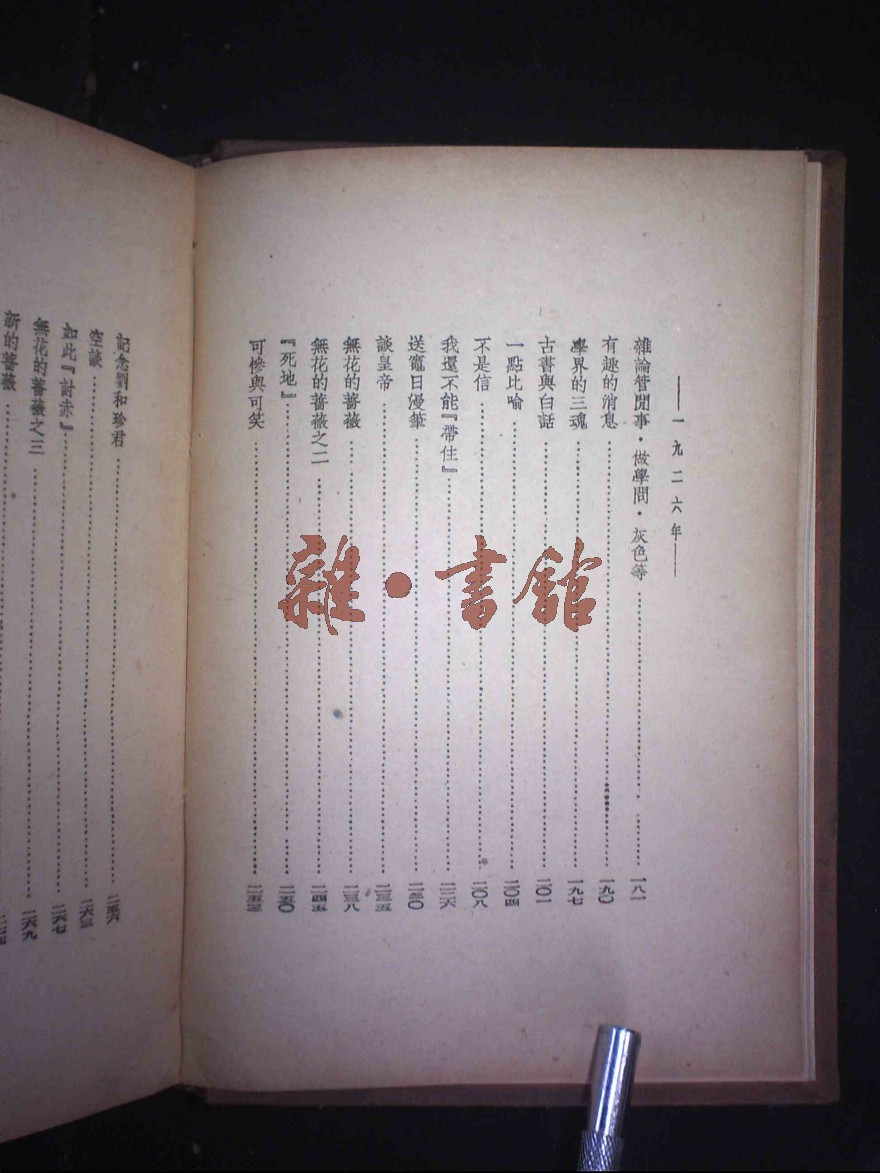 ——一九二六年——
雜論管閒事・做學問・灰色等……一八一
有趣的消息……一九〇
學界的三魂……一九七
古書與白話……二〇一
一點比喻……二〇四
不是信……二〇八
我還不能『帶住』……二二六
送竈日漫筆……二三〇
談皇帝……二三五
無花的薔薇……二三八
無花的薔薇之二……二四五
『死地』……二五〇
可慘與可笑……二五三
記念劉和珍君……二五六
空談……二六三
如此『討赤』……二六七
無花的薔薇之三……二六九
新的薔薇……
雜・書館